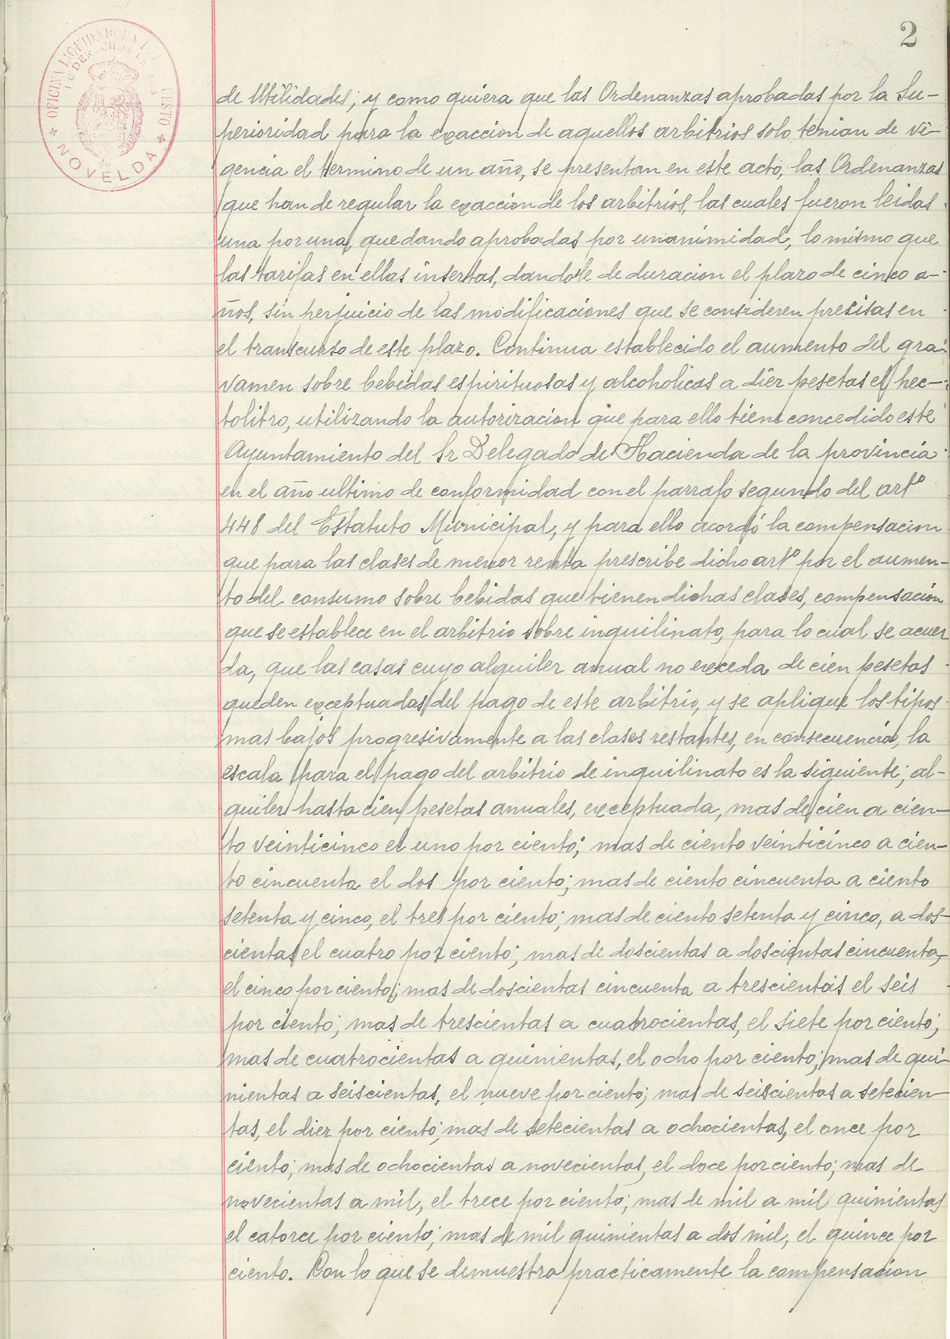 2
OFICINA LIQUIDADORA DEL
DE DERECHOS
NOVELDA
de Utilidades; y como quiera que las Ordenanzas aprobadas por la Su-
perioridad para la exaccion de aquellos arbitrios solo tenian de vi-
gencia el termino de un año, se presentan en este acto, las Ordenanzas
que han de regular la exaccion de los arbitrios, las cuales fueron leidas
una por una, quedando aprobadas por unanimidad, lo mismo que
las tarifas en ellas insertas, dandole de duracion el plazo de cinco a-
ños, sin perjuicio de las modificaciones que se consideren presisas en
el transcurso de este plazo. Continua establecido el aumento del gra-
vamen sobre bebidas espirituosas y alcoholicas a diez pesetas el hec-
tolitro, utilizando la autorizacion que para ello tiene concedido este
Ayuntamiento del Sr Delegado de Hacienda de la provincia
en el año ultimo de conformidad con el parrafo segundo del artº
448 del Estatuto Municipal, y para ello acordó la compensacion
que para las clases de menor renta prescribe dicho artº por el aumen-
to del consumo sobre bebidas que tienen dichas clases, compensacion
que se establece en el arbitrio sobre inquilinato, para lo cual se acuer
da, que las casas cuyo alquiler anual no exceda de cien pesetas
queden exceptuadas del pago de este arbitrio, y se aplique los tipos
mas bajos progresivamente a las clases restantes, en consecuencia, la
escala para el pago del arbitrio de inquilinato es la siguiente; al-
quiler hasta cien pesetas anuales, exceptuada, mas de cien a cien-
to veinticinco el uno por ciento; mas de ciento veinticinco a cien-
to cincuenta el dos por ciento; mas de ciento cincuenta a ciento
setenta y cinco, el tres por ciento; mas de ciento setenta y cinco, a dos-
cientas el cuatro por ciento; mas de doscientas a doscientas cincuenta,
el cinco por ciento; mas de doscientas cincuenta a trescientas el seis
por ciento; mas de trescientas a cuatrocientas, el siete por ciento;
mas de cuatrocientas a quinientas, el ocho por ciento; mas de qui-
nientas a seiscientas, el nueve por ciento; mas de seiscientas a setecien-
tas, el diez por ciento; mas de setecientas a ochocientas, el once por
ciento; mas de ochocientas a novecientas, el doce por ciento; mas de
novecientas a mil, el trece por ciento; mas de mil a mil quinientas
el catorce por ciento; mas de mil quinientas a dos mil, el quince por
ciento. Con lo que se demuestra practicamente la compensacion